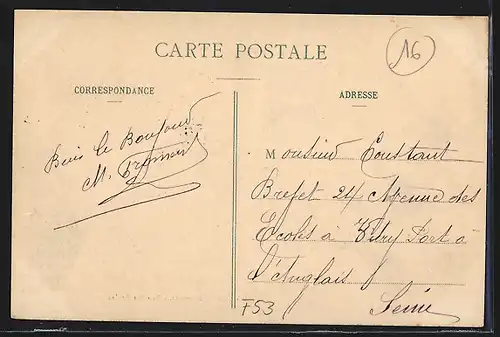 CARTE POSTALE
16
CORRESPONDANCE
ADRESSE
Bien le Bonjour
M.
Monsieur Constant
Brefet 24 Avenue des
Ecoles à Vitry Port à
l'Anglais
Seine
F53